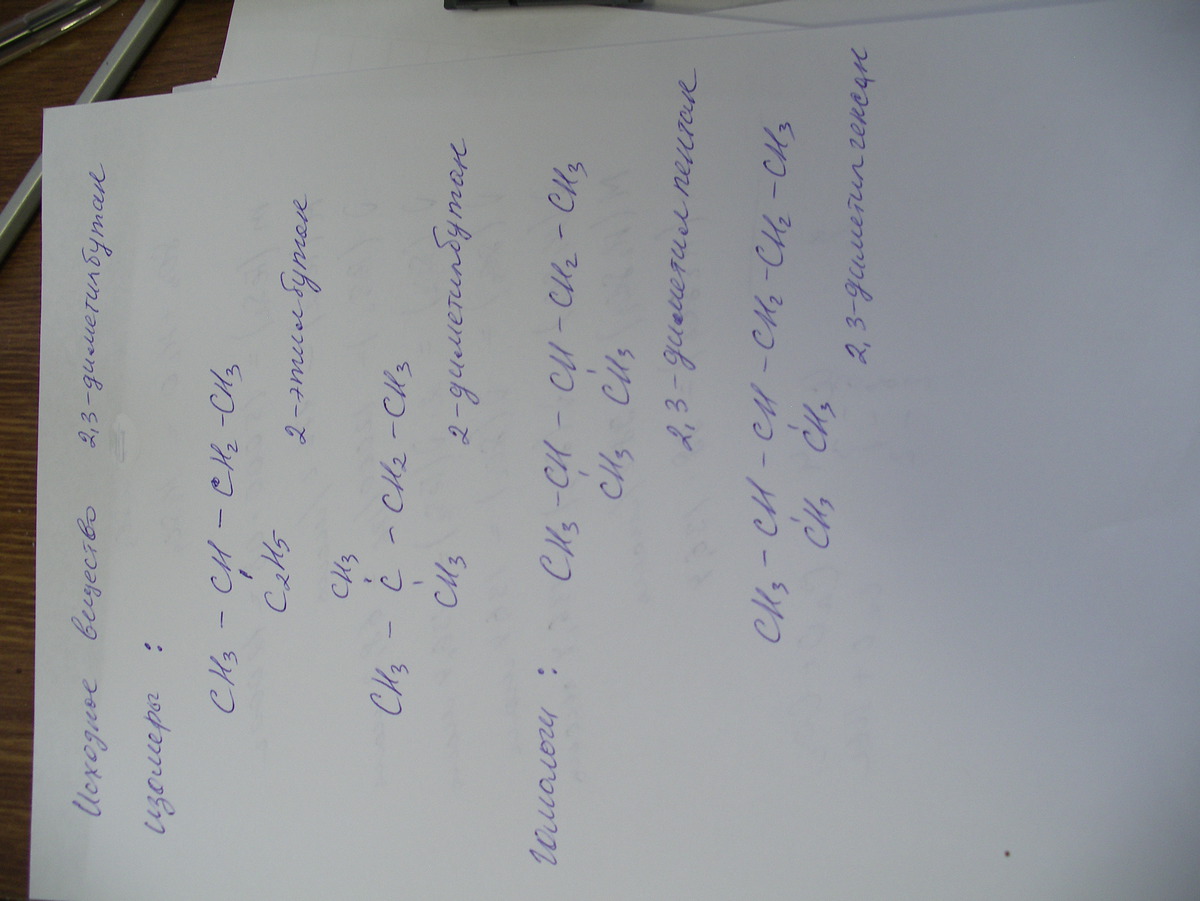 Исходное вещество 2,3-диметилбутан
изомеры :
CH3 – CH – CH2 – CH3
C2H5
2-этилбутан
CH3
CH3 – C – CH2 – CH3
CH3
2-диметилбутан
гомологи : CH3 – CH – CH – CH2 – CH3
CH3 CH3
2,3-диметилпентан
CH3 – CH – CH – CH2 – CH2 – CH3
CH3 CH3
2,3-диметилгексан